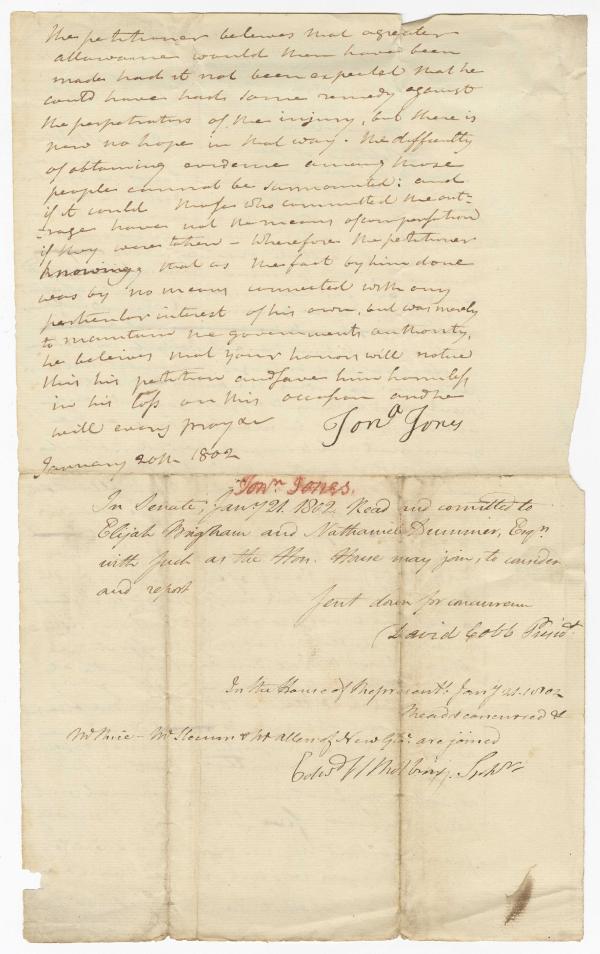 The petitioner believes that a greater
allowance would then have been
made had it not been expected that he
could have had some remedy against
the perpetrators of the injury, but there is
now no hope in that way. The difficulty
of obtaining evidence among those
people cannot be surmounted: and
if it could those who committed the out-
-rage have not the means of compensation
if they were taken – Wherefore the petitioner
knowing that as the fact by him done
was by no means connected with any
particular interest of his own, but was merely
to maintain the governments authority,
he believes that your honors will notice
this his petition and save him harmless
in his loss on this occasion and he
will every pray &c
Jona Jones
January 20th 1802
Jonn Jones.
In Senate, Jany 21. 1802 Read and comitted to
Elijah Brigham and Nathaniel Dummer, Esqrs
with such as the Hon. House may join, to consider
and report
sent down for concurrence
David Cobb Presidt
In the House of Representts Jany 21. 1802
Read & concurred &
Mr Rice – Mr Slocum & Mr Allen of New Glo. are joined
Edwd H Robbins, Spkr